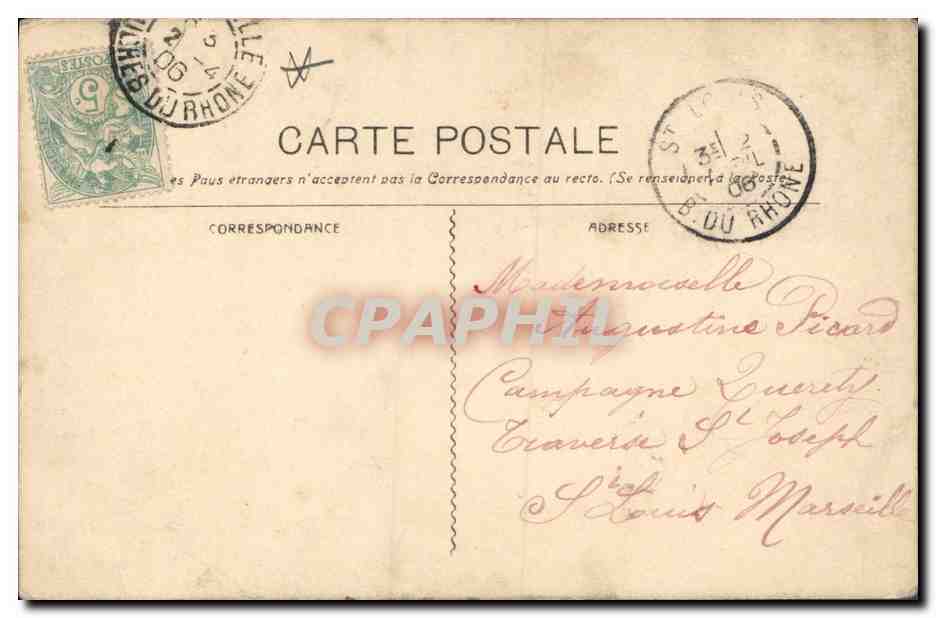 ELLE
2 3
06 -4
BOUCHES DU RHONE
POSTES
5c
CARTE POSTALE
ST LOUIS
3E 2
06
B. DU RHONE
es Pays étrangers n'acceptent pas la Correspondance au recto. (Se renseigner à la Poste)
CORRESPONDANCE
ADRESSE
Mademoiselle
CPAPHIL
Augustine Picard
Campagne
Traverse St Joseph
St Louis Marseille